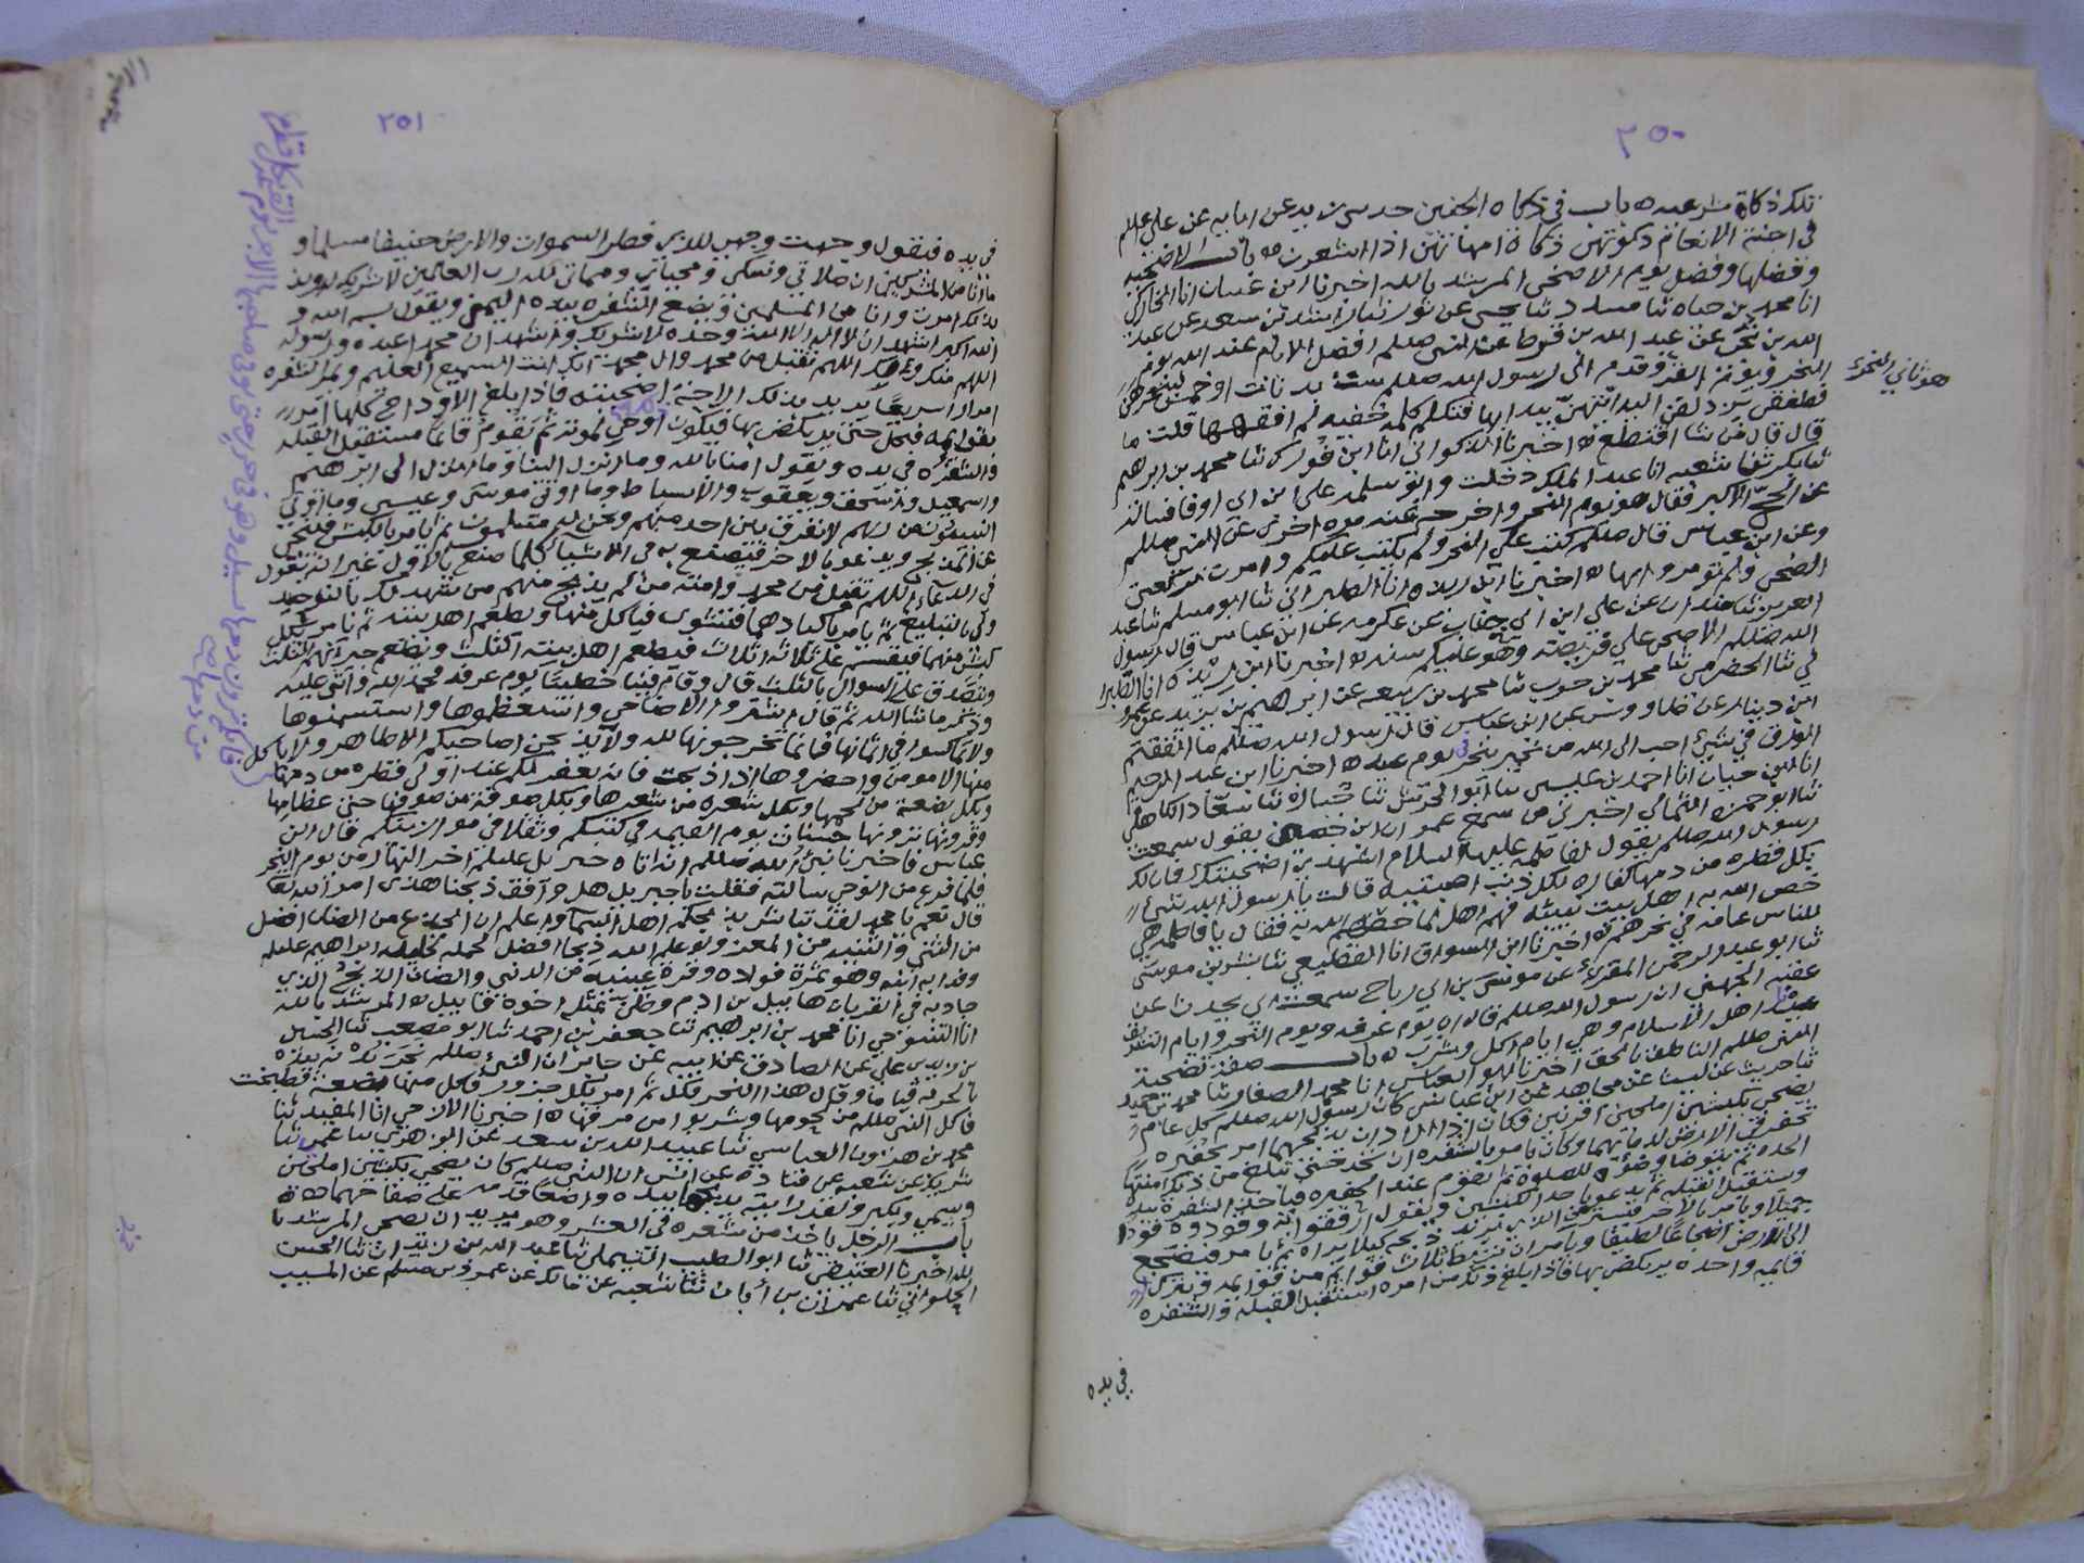 ٢٥٠
تلك ذكاة شرعيه ه باب في ذكاة الجنين حد سي زيد عن ابايه عن علي علم
في اجنة الانعام ذكوتهن ذكاة امهاتهن اذا اشعرت ه باب الاضحية
وفضلها وفضل يوم الاضحى المرشد بالله اخبرنا ابن غسان انا
انا محمد بن حباه ثنا مسدد ثنا يحيى عن ثور ثنا راشد بن سعد عن عبد
الله بن نجي عن عبد الله بن قرط عن النبي صللم افضل الايام عند الله يوم
النحر ويوم القر وقدم الى رسول الله صللم بدنات او خمس
هو ثاني النحر
فطفقن يزدلفن اليه ايتهن يبدا بها فتكلم كلمه خفيه لم افقهها قلت ما
قال قال من شا اقتطع ه اخبرنا الذكواني انا ابن فورك ثنا محمد بن ابرهيم
ثنا بكر ثنا شعبه انا عبد الملك دخلت وابو سلمه على ابن ابي اوفا فسالته
عن الحج الاكبر فقال هو يوم النحر واخرجه عنه مره اخرى عن النبي صللم
وعن ابن عباس قال صللم كتب علي النحر ولم يكتب عليكم وامرت
الضحى ولم تومروا بها ه اخبرنا ابن ريذه انا الطبراني ثنا ابو مسلم ثنا عبد
العزيز ثنا مندل عن علي ابن ابي جناب عن عكرمه عن ابن عباس قال رسول
الله صللم الاضحى علي فريضه وهو عليكم سنه ه اخبرنا ابن ريذه انا الطبرا
ني ثنا الحضرمي ثنا محمد بن حرب ثنا محمد بن ربيعه عن ابرهيم بن يزيد عن عمرو
ابن دينار عن طاووس عن ابن عباس قال رسول الله صللم ما انفقتم
الورق في شيء احب الى الله من نحير ينحر يوم عيد ه اخبرنا ابن عبد الرحيم
انا ابن حيان انا احمد بن عيسى ثنا ابو الحريش ثنا
ثنا ابو حمزه الثمالي اخبرني من سمع عمران ابن حصين يقول سمعت
رسول الله صللم يقول لفاطمه عليها السلام اشهدي اضحيتك فان لك
بكل قطره من دمها كفاره لكل ذنب اصبتيه قالت يا رسول الله شيء
خص الله به اهل بيت نبيه فهم اهل لما خصهم الله به فقال يا فاطمه هي
للناس عامه في نحرهم ه اخبرنا ابن السواق انا القطيعي ثنا بشر بن موسى
ثنا ابو عبد الرحمن المقرئ عن موسى بن ابي رباح سمعت ابي يحدث عن
عقبه الجهني ان رسول الله صللم قال ان يوم عرفه ويوم النحر وايام التشريق
عيدنا اهل الاسلام وهي ايام اكل وشرب ه باب صفة تضحية
النبي صللم الناطق بالحق اخبرنا ابو العباس انا محمد الصفار ثنا محمد بن حميد
ثنا جرير عن ليث عن مجاهد عن ابن عباس كان رسول الله صللم كل عام
يضحي بكبشين املحين اقرنين وكان اذا اراد ان يذبحهما امر بحفيره
تحفر في الارض لدمايهما وكان يامر بالشفره ان تحد حتى تبلغ من ذلك امنيتها
الحده ثم يتوضا وضوه للصلوة ثم يقوم عند الحفيره فياخذ الشفرة بيده
ويستقبل القبله ثم يدعو باحد الكبشين ويقول ارفقوا به وقودوه قودا
جميلا ويامر بالاخر فيستر عن الذي يريد ذبحه كيلا يراه ثم يامر فيضجع
الى الارض اضجاعا لطيفا ويامر ان تربط ثلاث قوايم من قوايمه وتترك
قايمه واحده يركض بها فاذا بلغ ذلك من امره استقبل القبله والشفره
في يده
٢٥١
في يده فيقول وجهت وجهي للذي فطر السموات والارض حنيفا مسلما و
ما انا من المشركين ان صلاتي ونسكي ومحياي ومماتي لله رب العالمين لا شريك له وبذ
لك امرت وانا من المسلمين ويضع الشفره بيده اليمنى ويقول بسم الله و
الله اكبر اشهد ان لا اله الا الله وحده لا شريك له واشهد ان محمدا عبده ورسوله
اللهم منك ولك اللهم تقبل من محمد وال محمد انك انت السميع العليم ويمر الشفره
امرارا سريعا يريد بذلك الاحنة اضحيته فاذا بلغ الاوداج
بقوايمه فيحل حتى يركض بها فيكون اوحى لموته ثم يقوم قايما مستقبل القبله
والشفره في يده ويقول امنا بالله وما انزل الينا وما انزل الى ابرهيم
واسمعيل واسحق ويعقوب والاسباط وما اوتي موسى وعيسى وما اوتي
النبيون من ربهم لا نفرق بين احد منهم ونحن له مسلمون ثم يامر بالكبش فينحى
عن المذبح ويدعو بالاخر فيصنع به من الاشيا كلما صنع بالاول غير انه يقول
في الدعاء اللهم تقبل من محمد وامته من لم يذبح منهم من شهد لك بالتوحيد
ولي بالتبليغ ثم يامر باكبادهما فتشوى فياكل منها ويطعم اهل بيته ثم يامر بكل
كبش منهما فيقسم على ثلاثه اثلاث فيطعم اهل بيته الثلث ويطعم جيرانهم الثلث
ويتصدق على السوال بالثلث قال وقام فينا خطيبا يوم عرفه فحمد الله واثنى عليه
وذكر ما شا الله ثم قال اشتروا الاضاحي واستعظموها واستسمنوها
ولا تماكسوا في اثمانها فانما تخرجونها لله ولا يذبحن اضاحيكم الا طاهر ولا ياكل
منها الا مومن واحضروها اذا ذبحت فانه يغفر لكم عند اول قطره من دمها
وبكل بضعة من لحمها وبكل شعره من شعرها وبكل صوفة من صوفها حتى عظامها
وقرونها ترونها حسنات يوم القيمه في كتبكم وثقلا في موازينكم قال ابن
عباس فاخبرنا نبي الله صللم انه اتاه جبريل عليلم اخر النهار من يوم النحر
فلما فرغ من الوحي سالته فقلت يا جبريل هل وافق ذبحنا هذا امر الله تعا
قال نعم يا محمد لقد تباشر بذبحكم اهل السما واعلم ان الجذع من الضان افضل
من الثني والثنيه من المعز ولو علم الله ذبحا افضل لجعله لخليله ابراهيم عليلم
وفدا به ابنه وهو ثمرة فواده وقرة عينيه من الدنيا والضان الذبح الذي
جاد به في القربان هابيل بن ادم وظن بمثله اخوه قابيل ه المرشد بالله
انا التنوخي انا محمد بن ابرهيم ثنا جعفر بن احمد ثنا ابو مصعب ثنا الحسين
بن زيد بن علي عن الصادق عن ابيه عن جابر ان النبي صللم نحر بدنه
بالحربه قياما وقال هذا النحر فكل ثم امر بكل جزور فاكل منها بضعة فطبخت
فاكل النبي صللم من لحومها وشربوا من مرقها ه اخبرنا الازجي انا المفيد ثنا
محمد بن هرون العباسي ثنا عبيد الله بن سعد عن الزهري ثنا عمي ثنا
شريك عن شعبه عن قتادة عن انس ان النبي صللم كان يضحي بكبشين املحين
ويسمي ويكبر ولقد رايته يذبحها بيده واضعا قدمه على صفاحهما ه
باب الرجل ياخذ من شعره في العشر وهو يريد ان يضحي المرشد با
لله اخبرنا العتيقي ثنا ابو الطيب التيملي ثنا عبد الله بن زيدان ثنا الحسن
الحلواني ثنا عمران بن أبان ثنا شعبه عن مالك عن عمرو بن مسلم عن المسيب